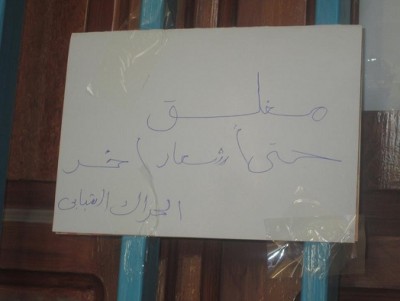 مغلق
حتى أشعار اخر
الحراك النقابي